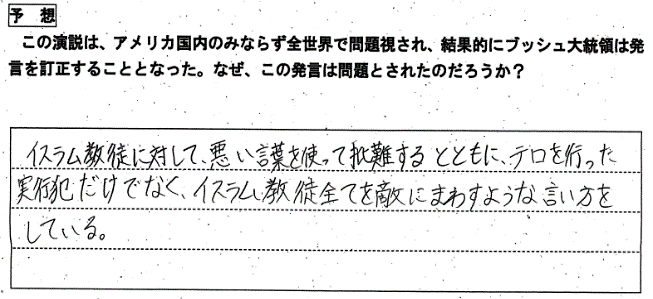 予　想
この演説は、アメリカ国内のみならず全世界で問題視され、結果的にブッシュ大統領は発
言を訂正することとなった。なぜ、この発言は問題とされたのだろうか？
イスラム教徒に対して、悪い言葉を使って批難するとともに、テロを行った
実行犯だけでなく、イスラム教徒全てを敵にまわすような言い方を
している。